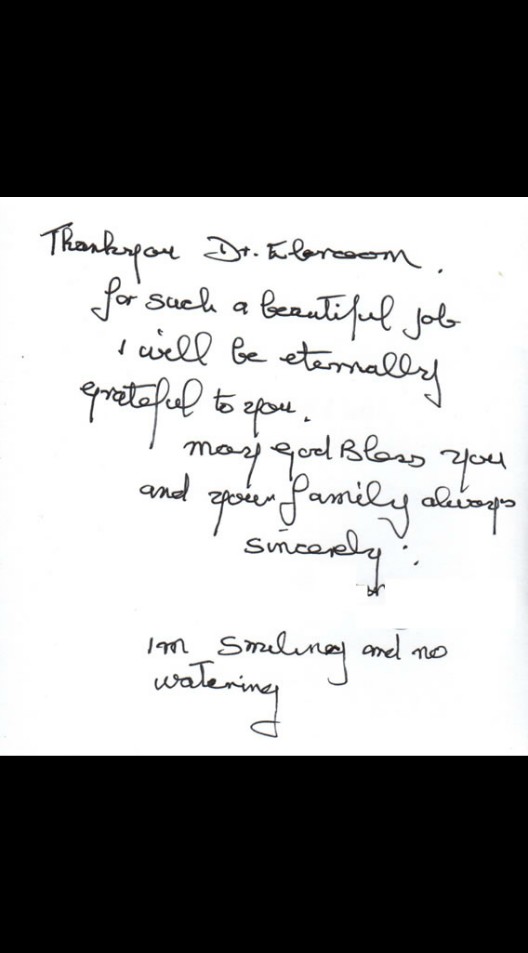 Thankyou Dr.
for such a beautiful job
I will be eternally
grateful to you.
may god Bless you
and your family always
sincerely :
Im smiling and no
watering